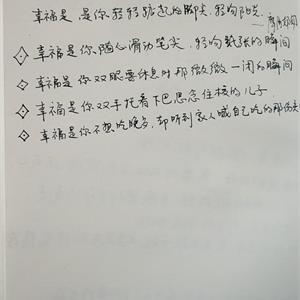 幸福是 是你轻轻踮起的脚尖,轻吻阳光.
◇幸福是你随心滑动笔尖,轻吻纸张的瞬间
◇幸福是你双眼要休息时那微微一闭的瞬间
◇幸福是你双手托着下巴思念住校的儿子
◇幸福是你不想吃晚乡,却听到家人喊自己吃的那份关